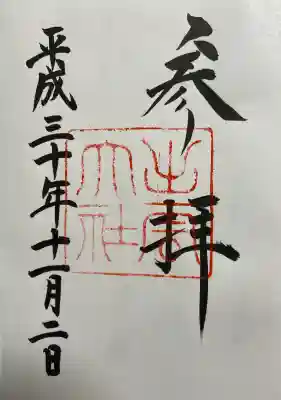 参拝
出雲
大社
平成三十年十一月二日